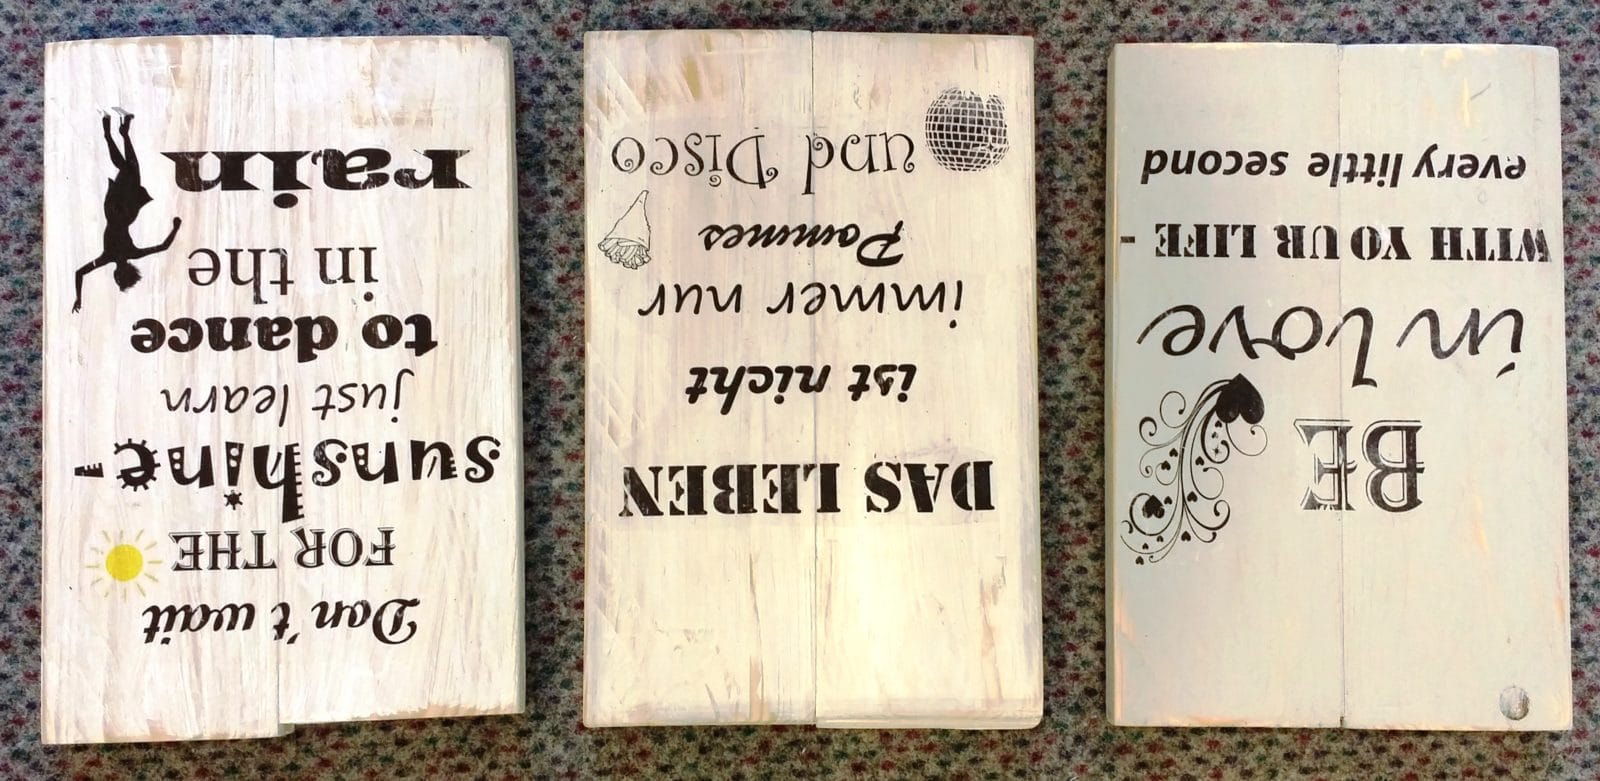 BE
in love
WITH YOUR LIFE -
every little second
DAS LEBEN
ist nicht
immer nur
Pommes
und Disco
Don't wait
FOR THE
sunshine-
just learn
to dance
in the
rain